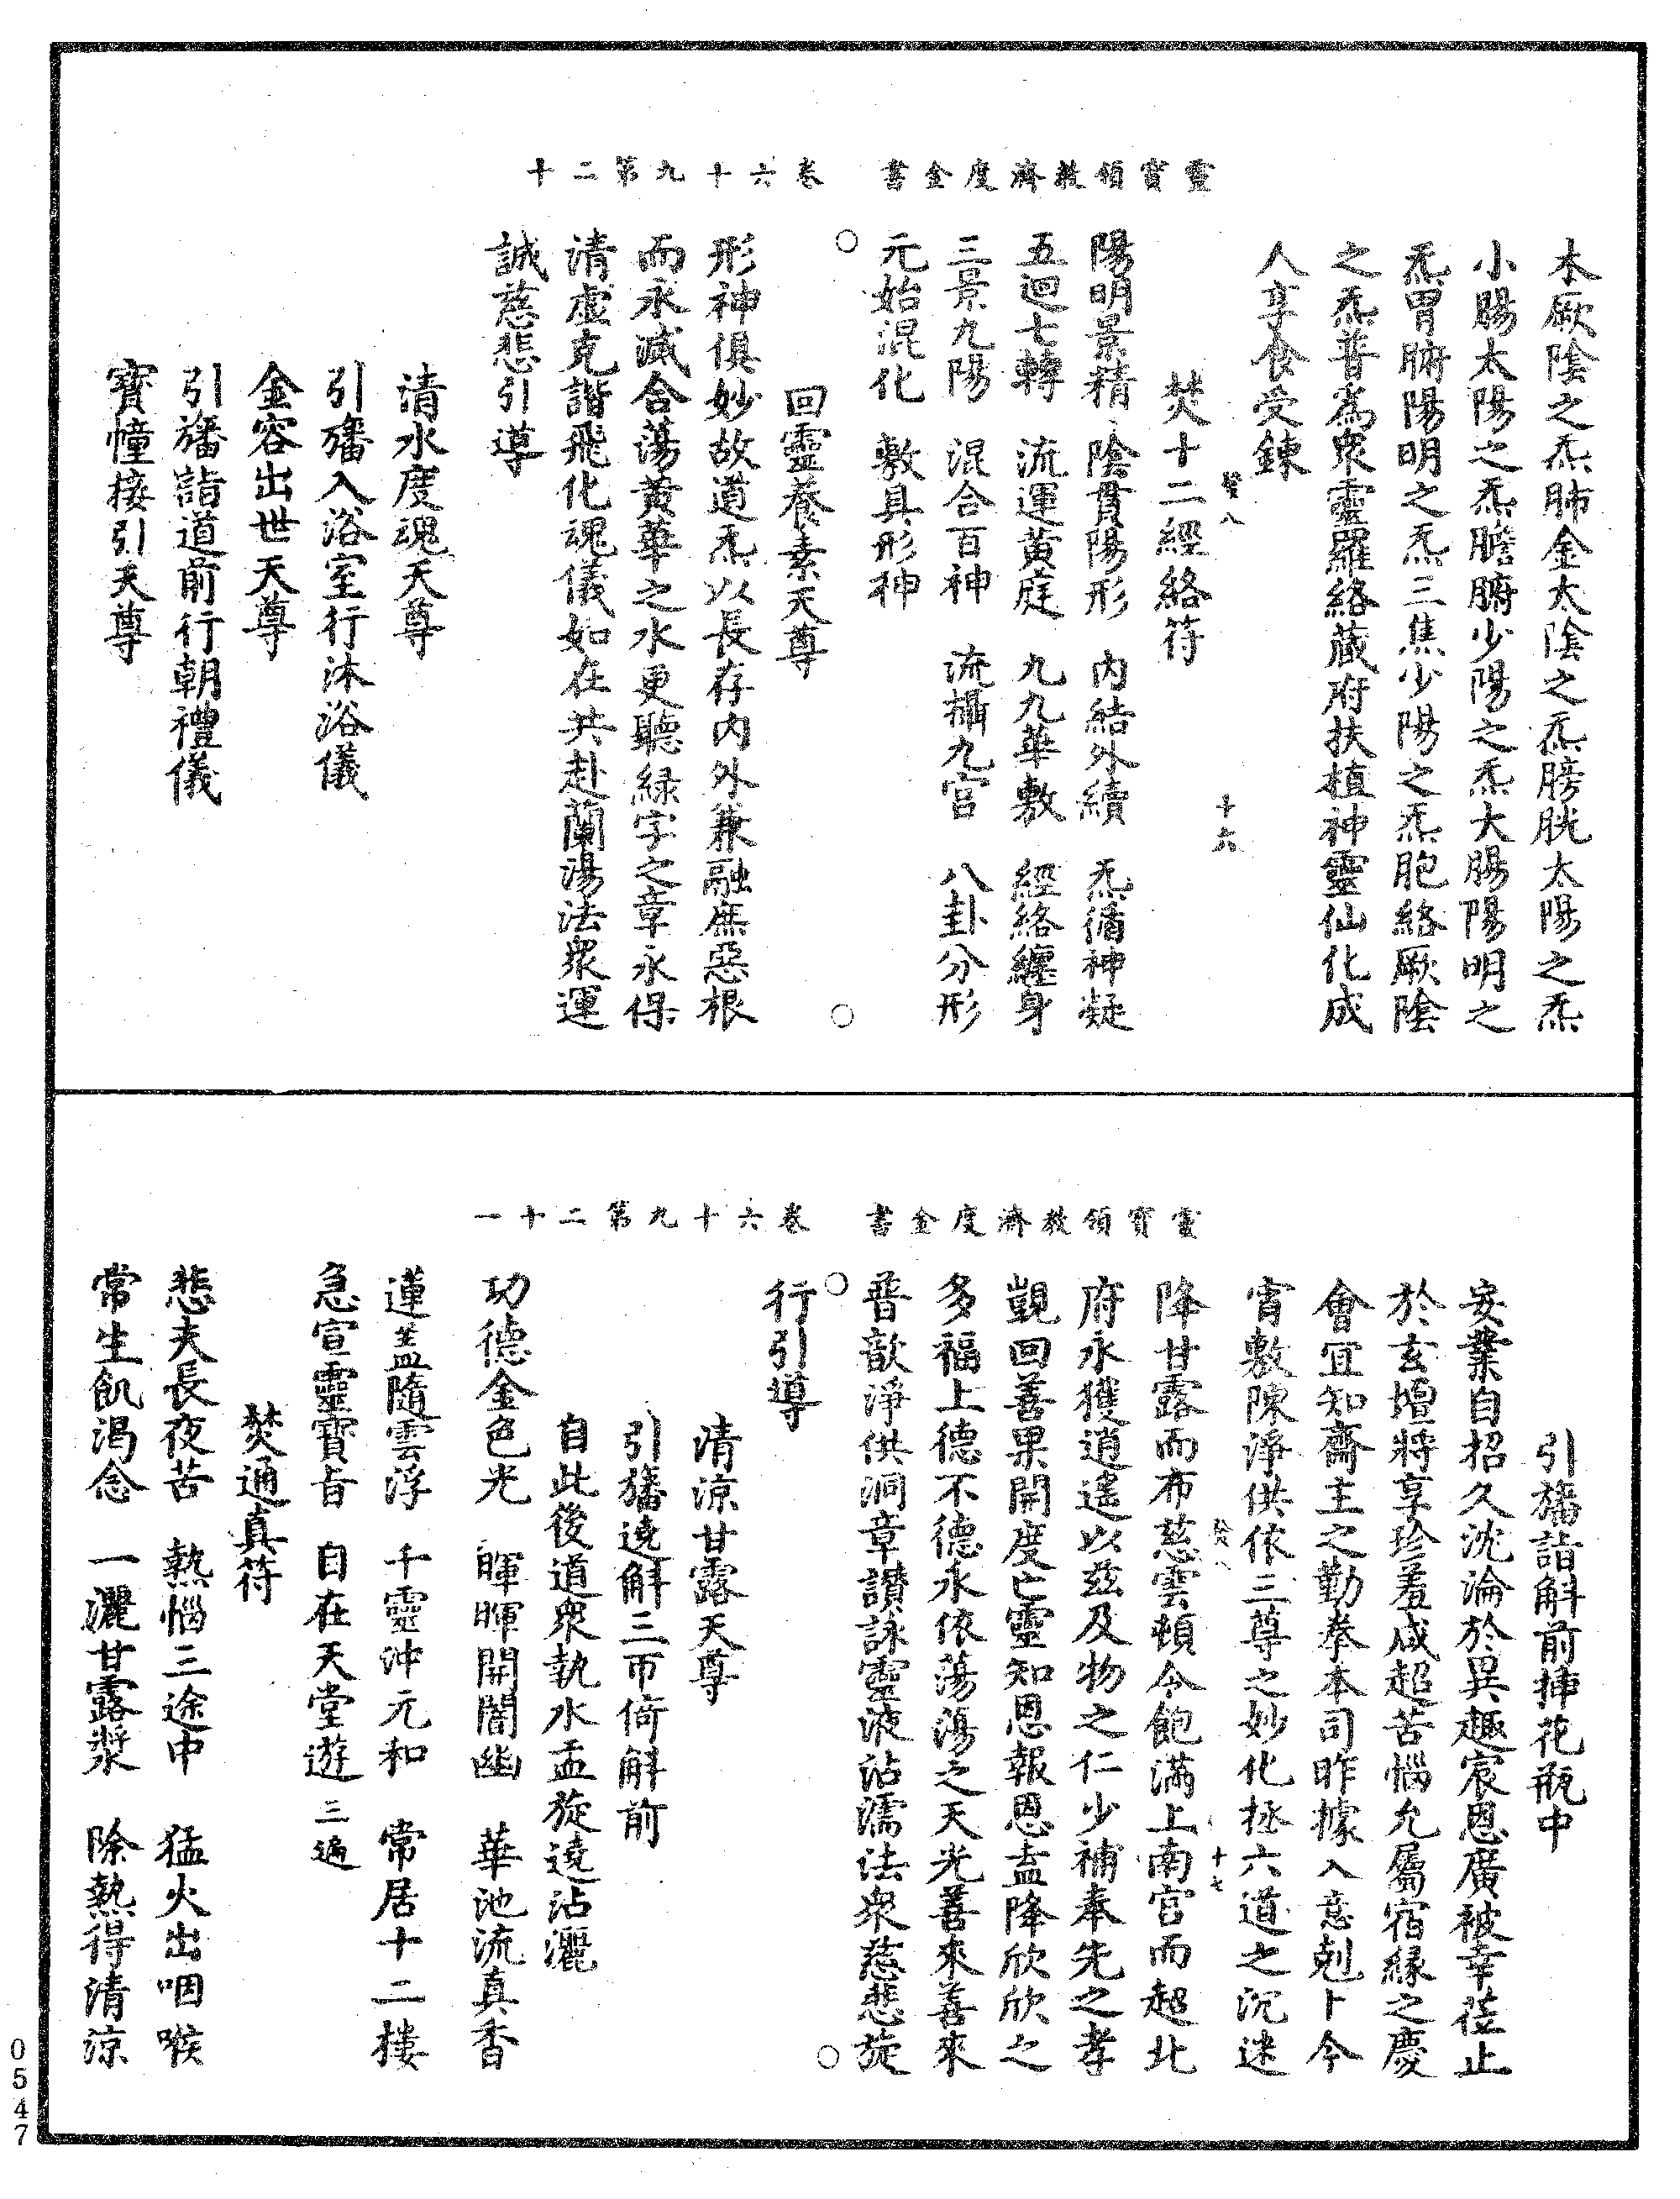 靈寶領教濟度金書　卷六十九第二十
木厥陰之炁肺金太陰之炁膀胱太陽之炁
小腸太陽之炁膽腑少陽之炁大腸陽明之
炁胃腑陽明之炁三焦少陽之炁胞絡厥陰
之炁普為衆靈羅絡藏府扶植神靈仙化成
人享食受鍊
賢八　十六
焚十二經絡符
陽明景精　陰貫陽形　內結外續　炁循神凝
五迴七轉　流運黃庭　九九華敷　經絡纏身
三景九陽　混合百神　流攝九宮　八卦分形
元始混化　敷具形神
回靈養素天尊
形神俱妙故道炁以長存內外兼融庶惡根
而永滅合蕩黃華之水更聽緑字之章永保
清虛克諧飛化魂儀如在共赴蘭湯法衆運
誠慈悲引導
清水度魂天尊
引旛入浴室行沐浴儀
金容出世天尊
引旛詣道前行朝禮儀
寶幢接引天尊
靈寶領教濟度金書　卷六十九第二十一
引旛詣斛前挿花瓶中
妄業自招久沈淪於異趣宸恩廣被幸莅止
於玄壇將享珍羞咸超苦惱允屬宿緣之慶
會宜知齋主之勤拳本司昨據入意剋卜今
宵敷陳淨供依三尊之妙化拯六道之沉迷
降甘露而布慈雲頓令飽滿上南宮而超北
賢八　十七
府永獲逍遙以兹及物之仁少補奉先之孝
覬回善果開度亡靈知恩報恩盍降欣欣之
多福上德不德永依蕩蕩之天光善來善來
普歆淨供洞章讃詠靈液沾濡法衆慈悲旋
行引導
清涼甘露天尊
引旛遶斛三帀倚斛前
自此後道衆執水盂旋遶沾灑
功德金色光　暉暉開闇幽　華池流真香
蓮盖隨雲浮　千靈沖元和　常居十二樓
急宣靈寶旨　自在天堂遊　三遍
焚通真符
悲夫長夜苦　熱惱三途中　猛火出咽喉
常生飢渴念　一灑甘露漿　除熱得清涼
0547